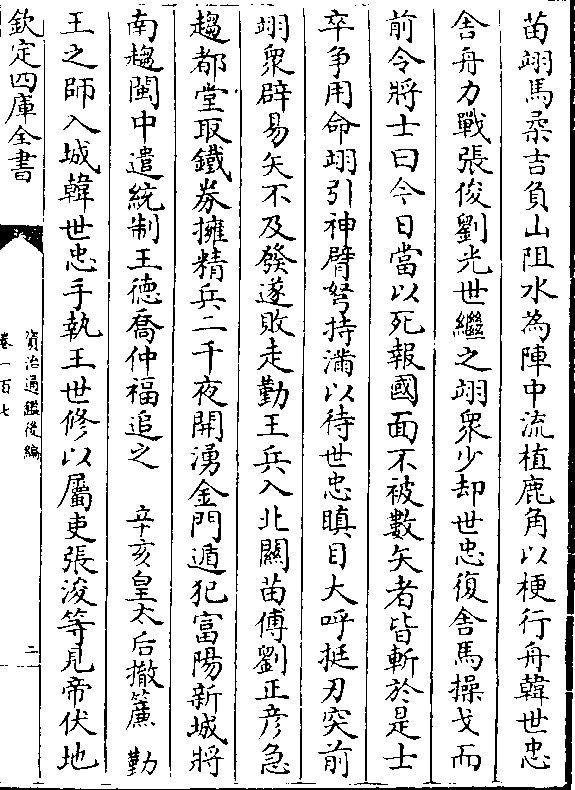 苗翊馬柔吉負山阻水為陣中流植鹿角以梗行舟韓世忠
舍舟力戰張俊劉光世繼之翊衆少却世忠復舍馬操戈而
前令將士曰今日當以死報國面不被數矢者皆斬於是士
卒争用命翊引神臂弩持滿以待世忠瞋目大呼挺刃突前
翊衆辟易矢不及發遂敗走勤王兵入北闗苗傅劉正彦急
趨都堂取鐵券擁精兵二千夜開湧金門遁犯富陽新城將
南趨閩中遣統制王德喬仲福追之　辛亥皇太后撤簾　勤
王之師入城韓世忠手執王世修以屬吏張浚等見帝伏地
欽定四庫全書
資治通鑑後編
卷一百七
二